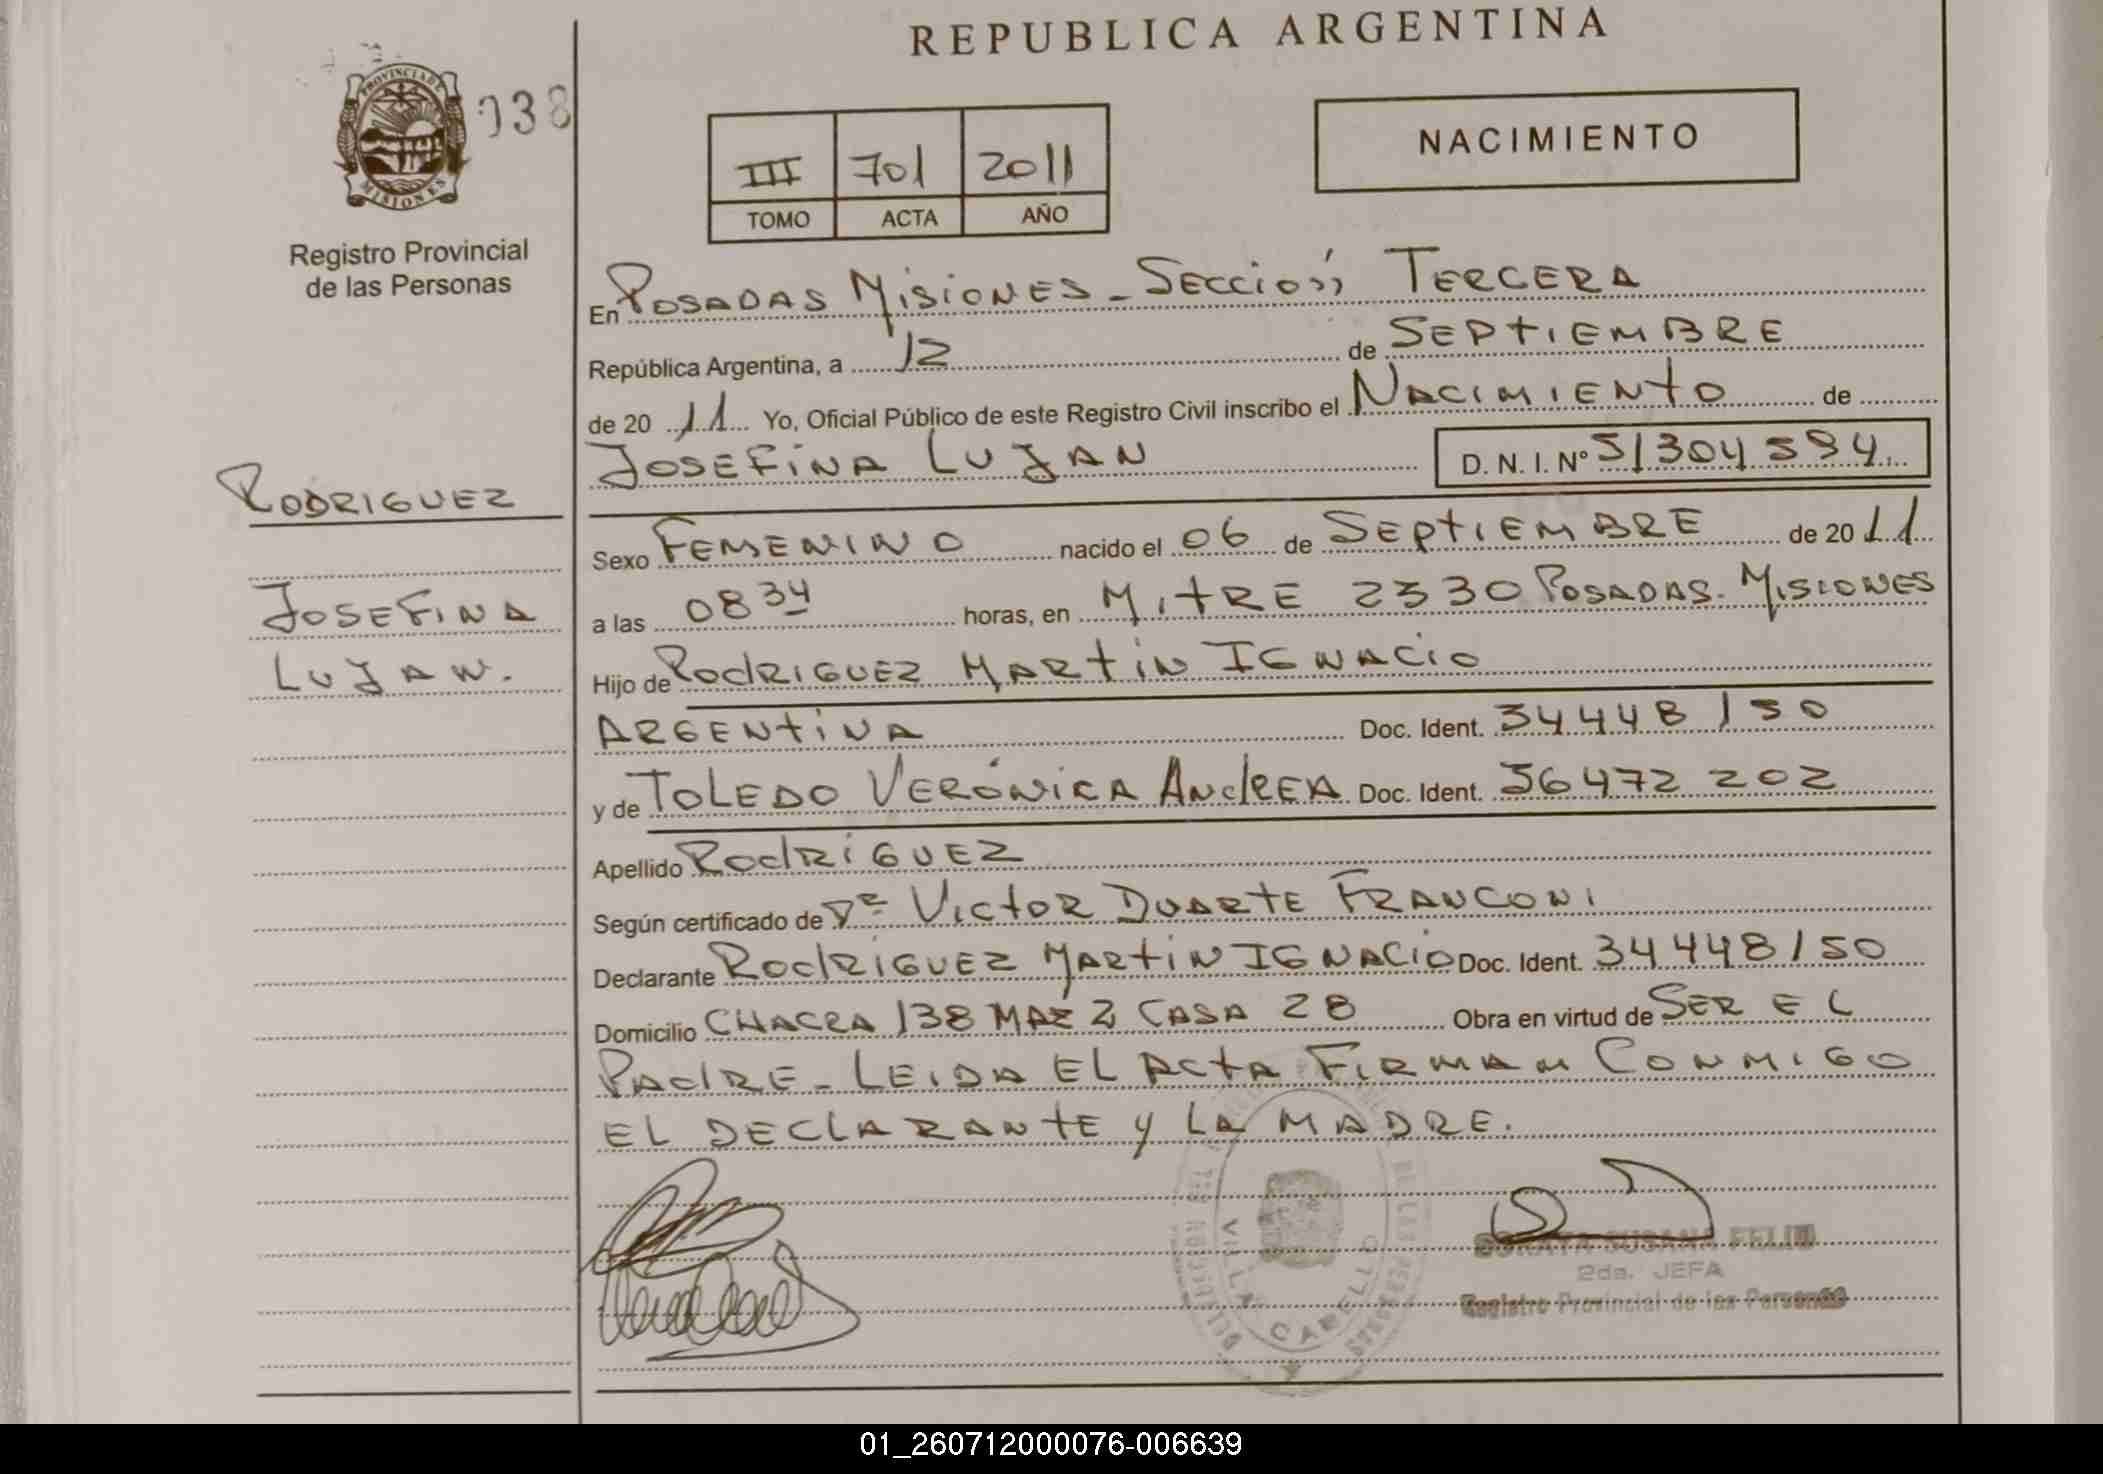 REPUBLICA ARGENTINA
PROVINCIA DE
MISIONES
038
Registro Provincial
de las Personas
III 701 2011
TOMO ACTA AÑO
NACIMIENTO
En POSADAS MISIONES - SECCIÓN TERCERA
República Argentina, a 12 de SEPTIEMBRE
de 20 11 Yo, Oficial Público de este Registro Civil inscribo el NACIMIENTO de
JOSEFINA LUJAN D. N. I. Nº 51304594
RODRIGUEZ
JOSEFINA
LUJAN.
Sexo FEMENINO nacido el 06 de SEPTIEMBRE de 20 11
a las 08 34 horas, en MITRE 2330 POSADAS. MISIONES
Hijo de RODRIGUEZ MARTIN IGNACIO
ARGENTINA Doc. Ident. 34448150
y de TOLEDO VERÓNICA ANDREA Doc. Ident. 36472202
Apellido RODRIGUEZ
Según certificado de Dr VICTOR DUARTE FRANCONI
Declarante RODRIGUEZ MARTIN IGNACIO Doc. Ident. 34448150
Domicilio CHACRA 138 MAZ 2 CASA 28 Obra en virtud de SER EL
PADRE - LEIDA EL ACTA FIRMAN CONMIGO
EL DECLARANTE Y LA MADRE.
VILLA CABELLO
SUSANA FELIU
2da. JEFA
Registro Provincial de las Personas
01_260712000076-006639